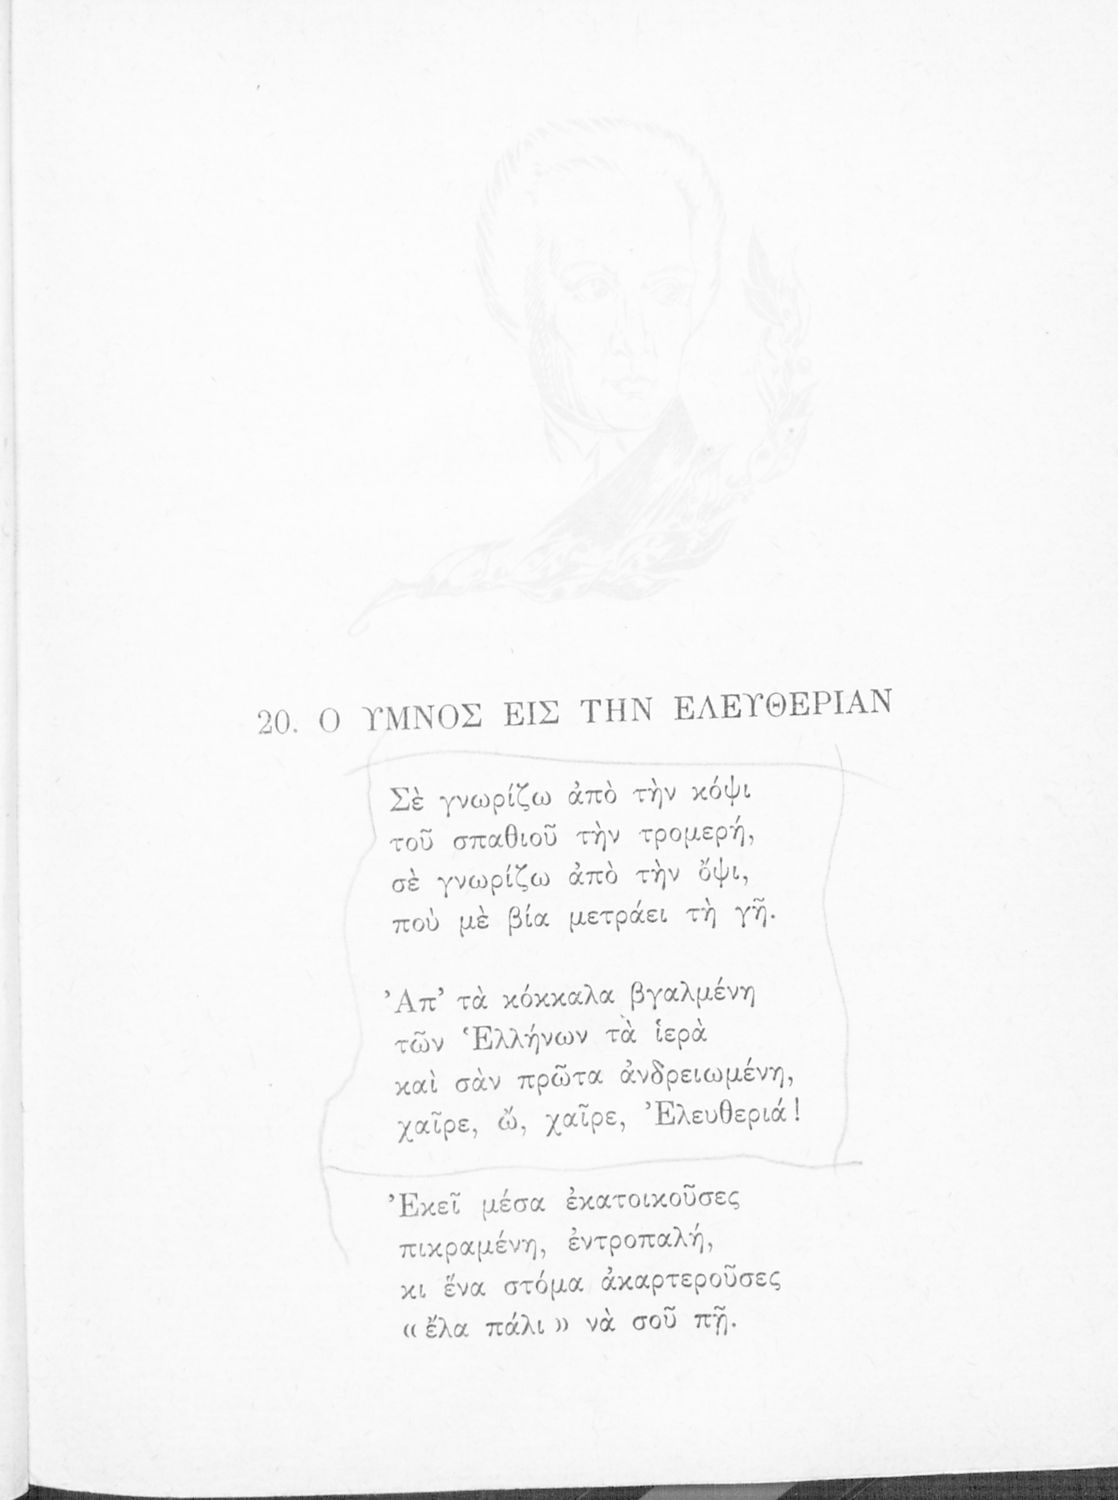 20. Ο ΥΜΝΟΣ ΕΙΣ ΤΗΝ ΕΛΕΥΘΕΡΙΑΝ
Σὲ γνωρίζω ἀπὸ τὴν κόψι
τοῦ σπαθιοῦ τὴν τρομερή,
σὲ γνωρίζω ἀπὸ τὴν ὄψι,
ποὺ μὲ βία μετράει τὴ γῆ.
Ἀπ’ τὰ κόκκαλα βγαλμένη
τῶν Ἑλλήνων τὰ ἱερὰ
καὶ σὰν πρῶτα ἀνδρειωμένη,
χαῖρε, ὤ, χαῖρε, Ἐλευθεριά!
Ἐκεῖ μέσα ἐκατοικοῦσες
πικραμένη, ἐντροπαλή,
κι ἕνα στόμα ἀκαρτεροῦσες
«ἔλα πάλι» νὰ σοῦ πῇ.